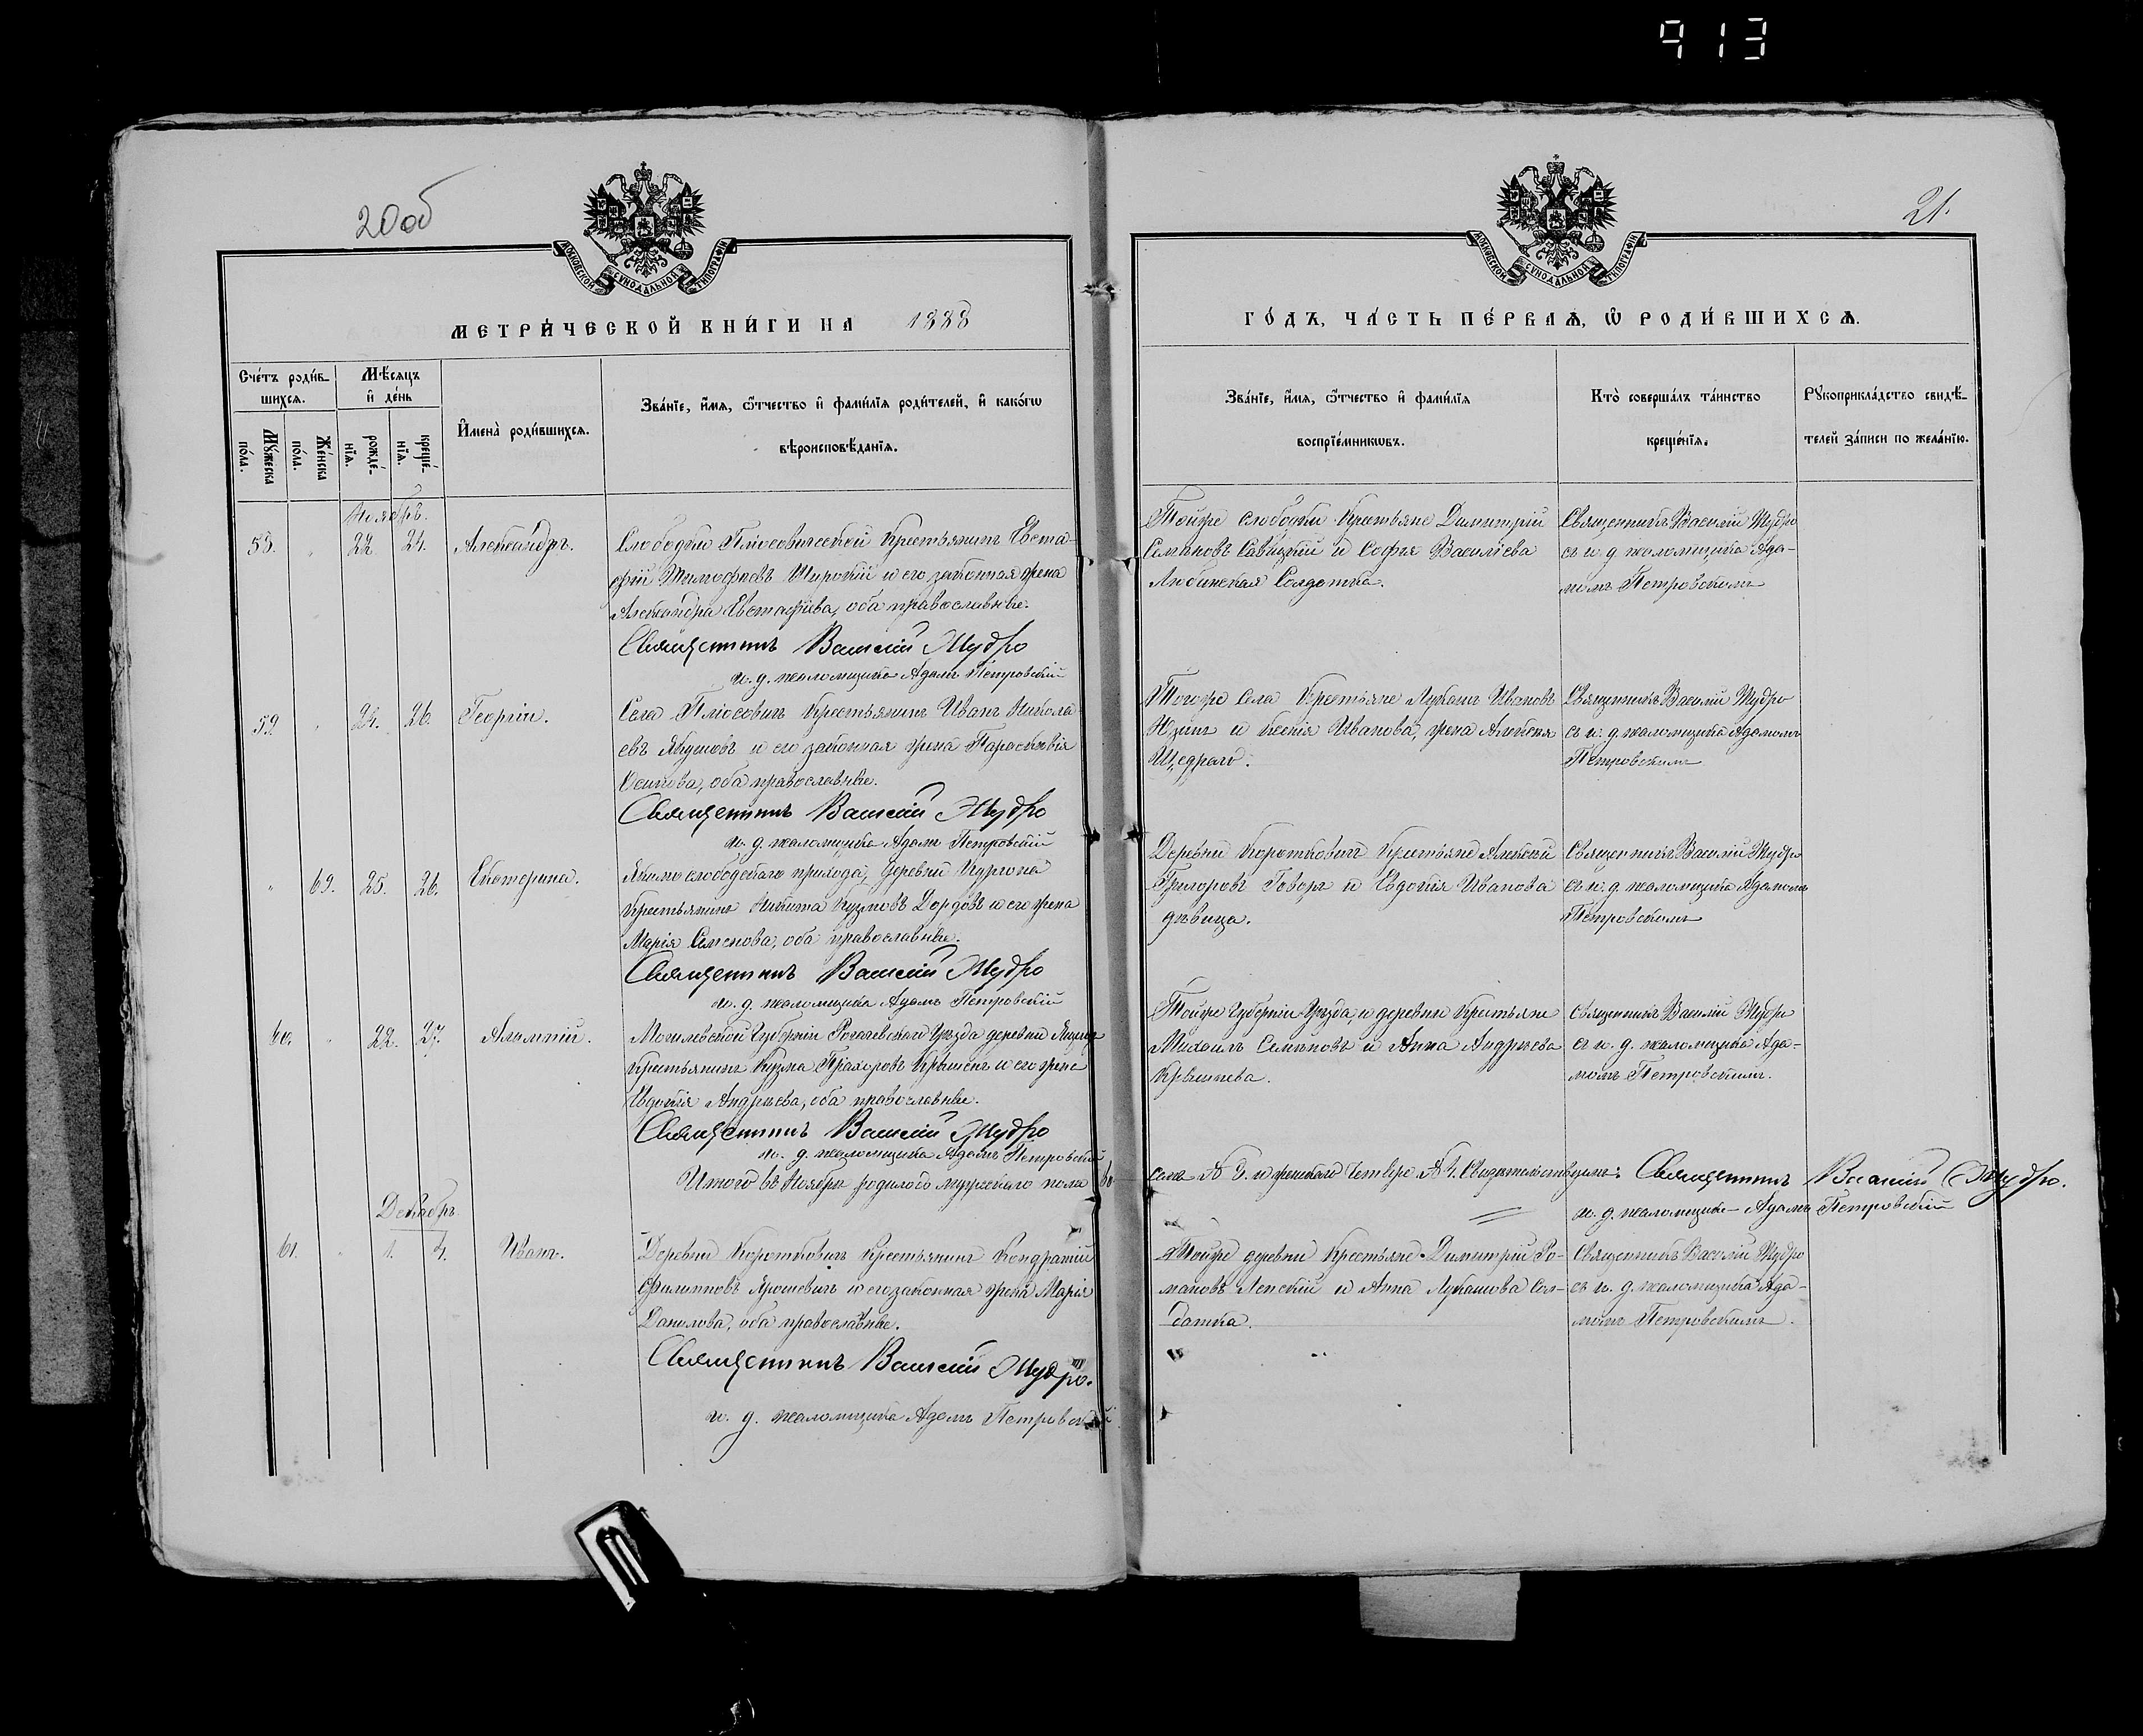 913
20об
21.
МОСКОВСКОЙ СѴНОДАЛЬНОЙ ТИПОГРАФІИ
МОСКОВСКОЙ СѴНОДАЛЬНОЙ ТИПОГРАФІИ
МЕТРИ́ЧЕСКОЙ КНИ́ГИ НА 1888
ГО́ДЪ, ЧА́СТЬ ПЕ́РВАѦ, Ѿ РОДИ́ВШИХСѦ.
Сче́тъ роди́в-
шихсѧ.
Мꙋ́жеска по́ла.
Же́нска по́ла.
Мѣ́сѧцъ
и҆ де́нь
рожде́-
нїѧ.
креще́-
нїѧ.
И҆мена̀ роди́вшихсѧ.
Зва́нїе, и҆́мѧ, ѻ҆́тчество и҆ фами́лїѧ роди́телей, и҆ како́гѡ
вѣроисповѣ́данїѧ.
Зва́нїе, и҆́мѧ, ѻ҆́тчество и҆ фами́лїѧ
воспрїе́мникѡвъ.
Кто̀ соверша́лъ та́инство
креще́нїѧ.
Рꙋкоприкла́дство свидѣ́-
телей за́писи по жела́нїю.
Ноябрь.
58. " 22. 24. Александръ.
Слободки Плюсовичской крестьянинъ Евста-
фій Тимофеевъ Широкій и его законная жена
Александра Евстафіева, оба православные.
Священникъ Василій Мудро
и. д. псаломщика Адамъ Петровскій
Тойже слободки крестьяне Димитрій
Семеновъ Савицкій и Софія Василіева
Любинская солдатка.
Священникъ Василій Мудро
съ и. д. псаломщика Ада-
момъ Петровскимъ
59. " 24. 26. Георгій.
Села Плюсовичъ крестьянинъ Иванъ Никола-
евъ Якушовъ и его законная жена Параскевія
Осипова, оба православные.
Священникъ Василій Мудро
и. д. псаломщика Адамъ Петровскій
Тогоже села крестьяне Лукашъ Ивановъ
и Ксенія Иванова, жена Алексея
Щедраго.
Священникъ Василій Мудро
съ и. д. псаломщика Адамомъ
Петровскимъ
" 69. 25. 26. Екатерина.
Якимослободскаго прихода, деревни
крестьянинъ Никита Кузмовъ и его жена
Марія Семенова, оба православные.
Священникъ Василій Мудро
и. д. псаломщика Адамъ Петровскій
Деревни Короткович крестьяне Алексей
Григоровъ Говоръ и Евдокія Иванова
дѣвица.
Священникъ Василій Мудро
съ и. д. псаломщика Адамомъ
Петровскимъ
60. " 22. 27. Алампій.
Могилевской губерніи Рогачевскаго уѣзда деревни
крестьянинъ Кузма Прахоровъ и его жена
Евдокія Андреева, оба православные.
Священникъ Василій Мудро
и. д. псаломщика Адамъ Петровскій
Тойже губерніи уѣзда, и деревни крестьяне
Михаилъ Семеновъ и Анна Андреева
Священникъ Василій Мудро
съ и. д. псаломщика Ада-
момъ Петровскимъ.
Итого въ Ноябрѣ родилось мужескаго пола
и женскаго четверо № 4. Свидѣтельствуемъ: Священникъ Василій Мудро.
и. д. псаломщика Адамъ Петровскій
Декабрь
61. " 1. 4. Иванъ.
Деревни Короткович крестьянинъ Кондратій
Филипповъ Ярошевичъ и его законная жена Марія
Данилова, оба православные.
Священникъ Василій Мудро.
и. д. псаломщика Адамъ Петровскій
Тойже деревни крестьяне Димитрій Ро-
мановъ Ленскій и Анна Лукашова сол-
датка.
Священникъ Василій Мудро
съ и. д. псаломщика Ада-
момъ Петровскимъ.